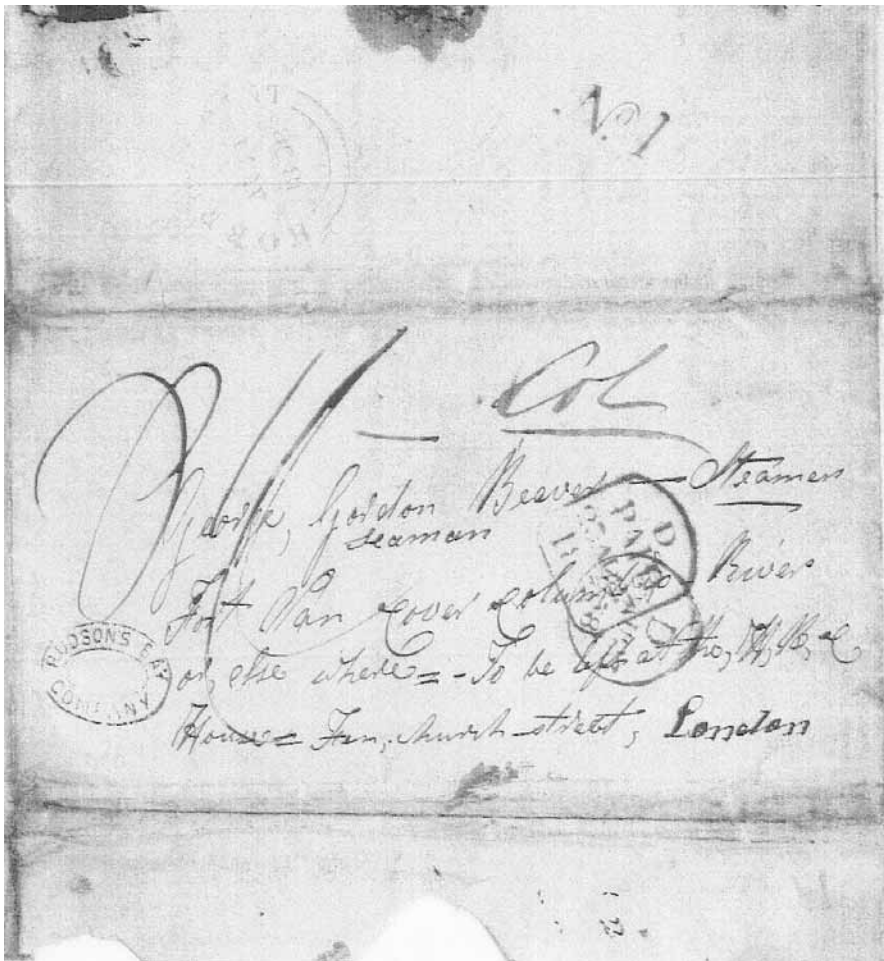 No. 1
Col
George, Gordon Beaver — Steamer
seaman
Fort Van Cover Columbia - River
or, else where = - To be left at the, H, B, C
House = Fen,church - street, London
HUDSON'S BAY COMPANY
PAID